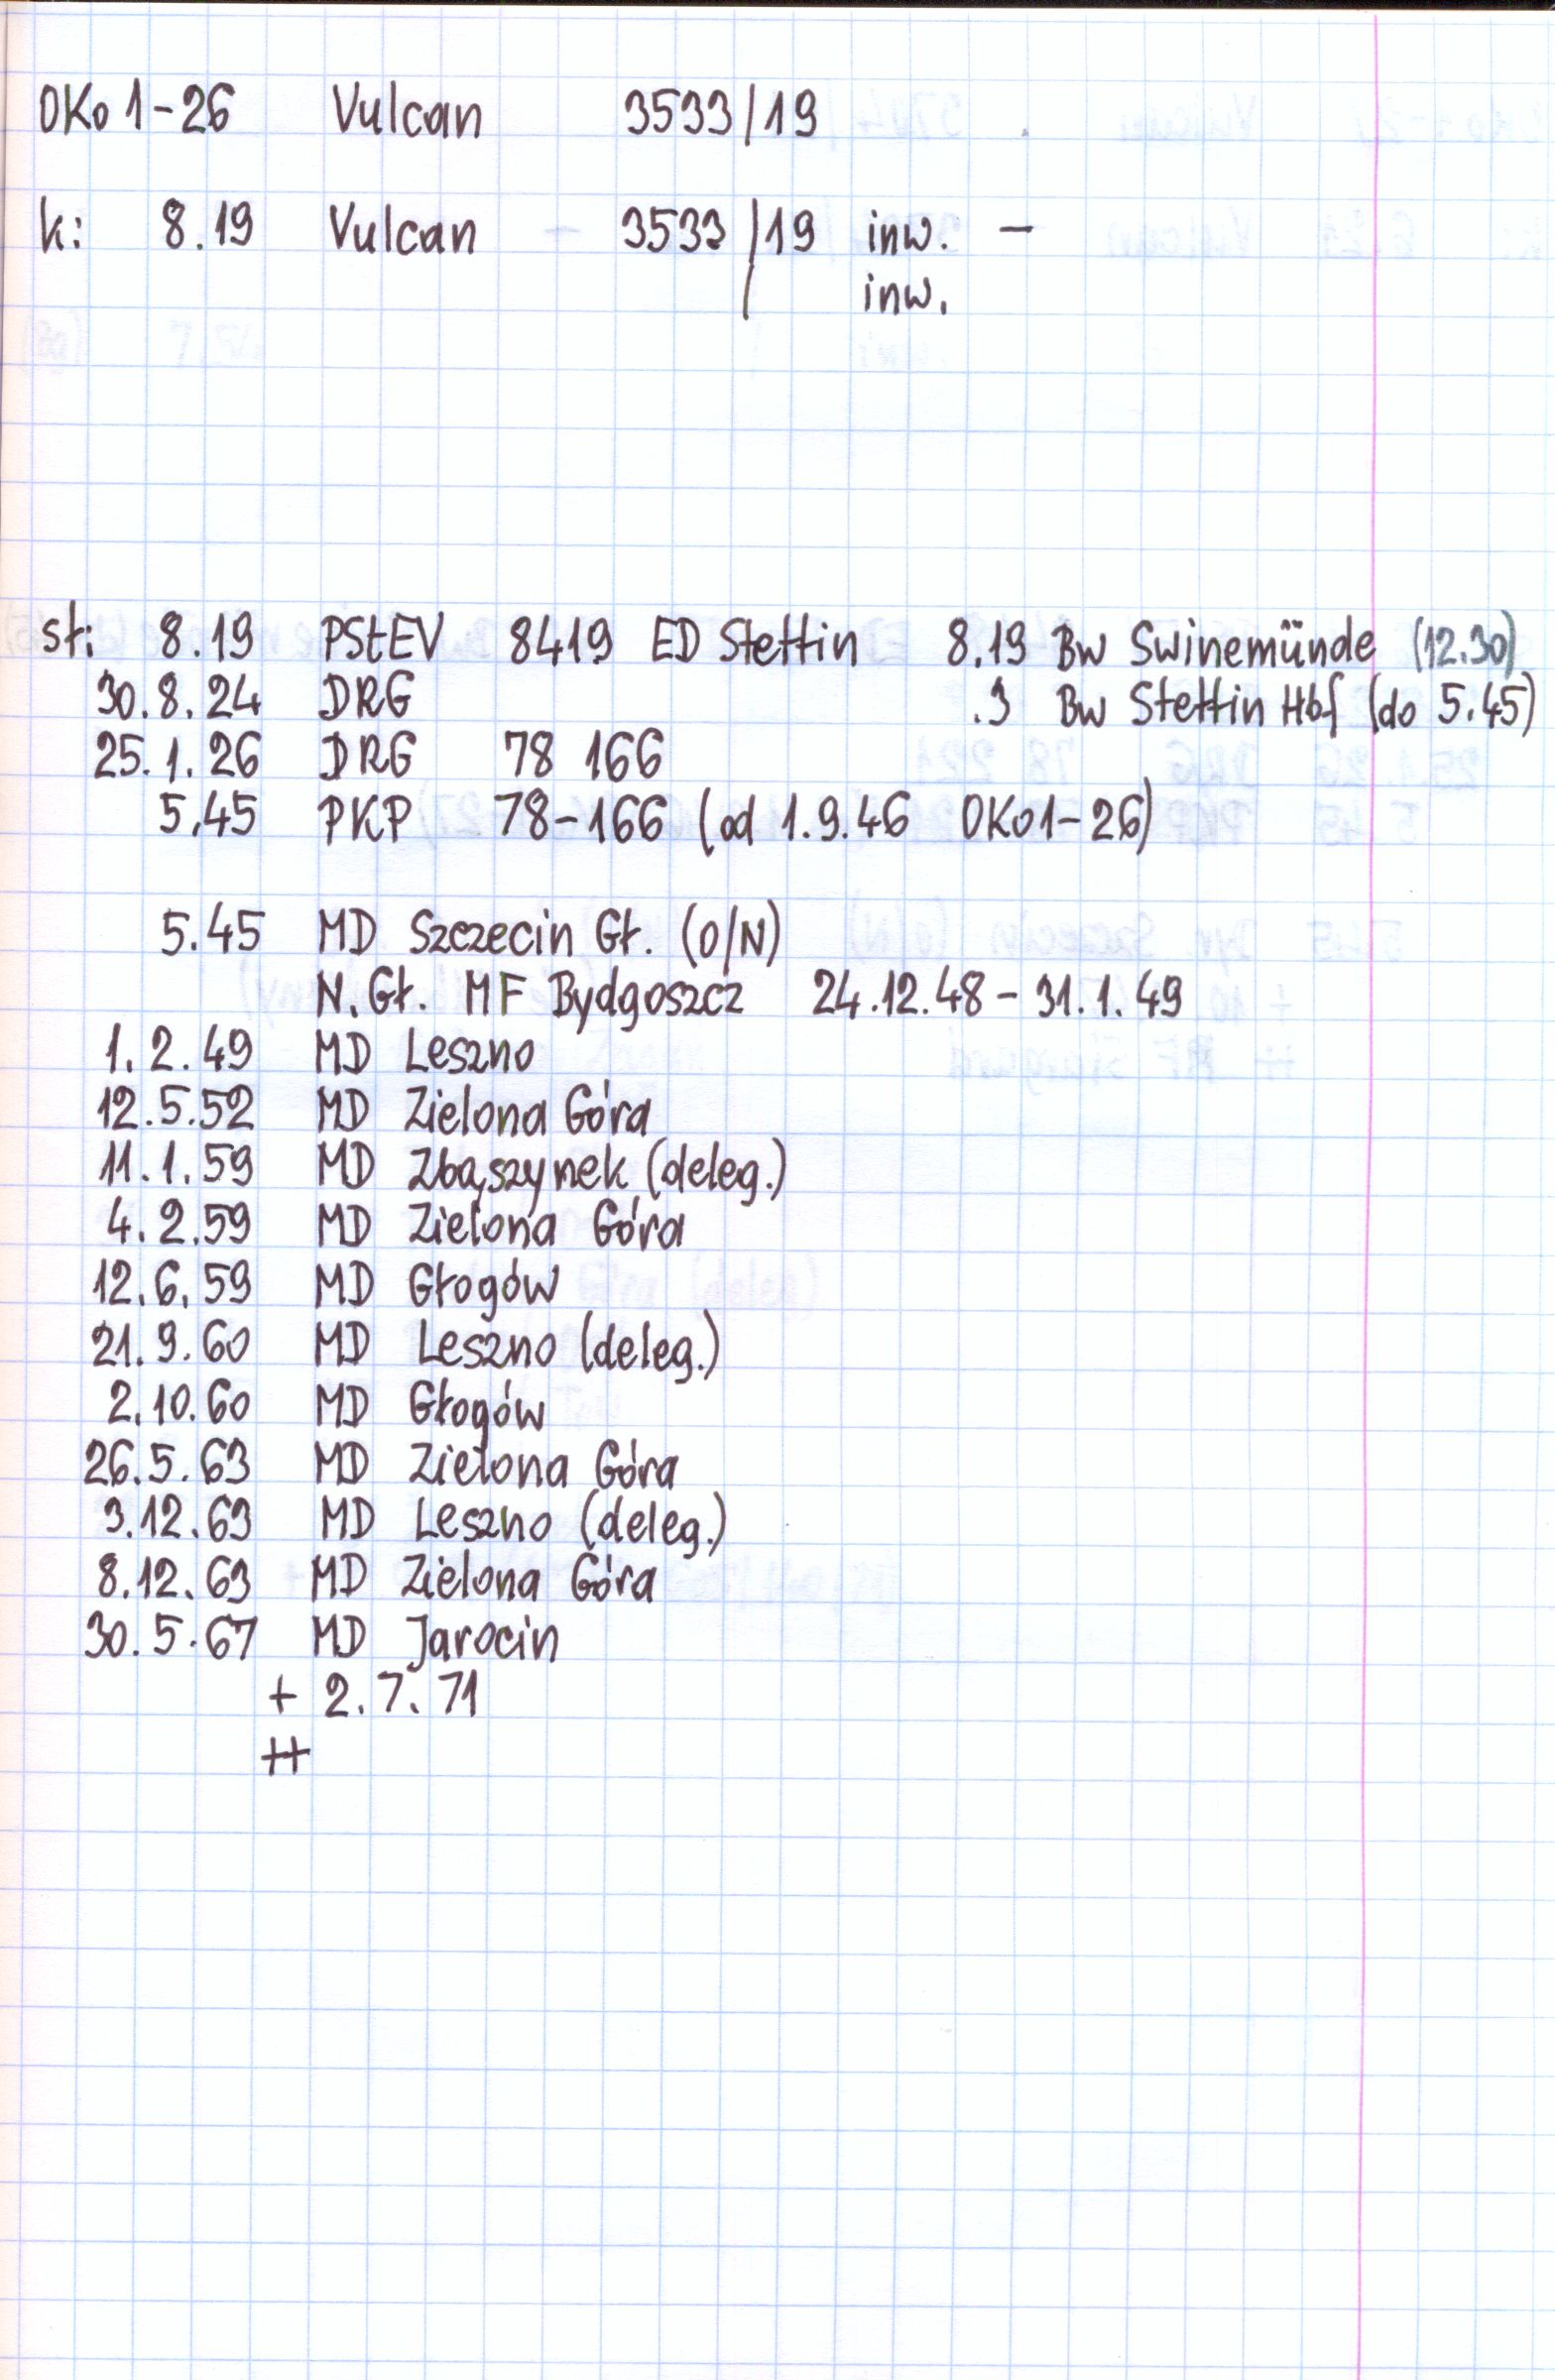 OKo 1-26 Vulcan 3533/19
k: 8.19 Vulcan 3533/19 inw. -
inw.
st: 8.19 PStEV 8419 ED Stettin 8.19 Bw Swinemünde (12.30)
30.8.24 DRG .3 Bw Stettin Hbf (do 5.45)
25.1.26 DRG 78 166
5.45 PKP 78-166 (od 1.9.46 OKo1-26)
5.45 MD Szczecin Gł. (O/N)
N.Gł. MF Bydgoszcz 24.12.48 - 31.1.49
1.2.49 MD Leszno
12.5.52 MD Zielona Góra
11.1.59 MD Zbąszynek (deleg.)
4.2.59 MD Zielona Góra
12.6.59 MD Głogów
21.9.60 MD Leszno (deleg.)
2.10.60 MD Głogów
26.5.63 MD Zielona Góra
3.12.63 MD Leszno (deleg.)
8.12.63 MD Zielona Góra
30.5.67 MD Jarocin
+ 2.7.71
++